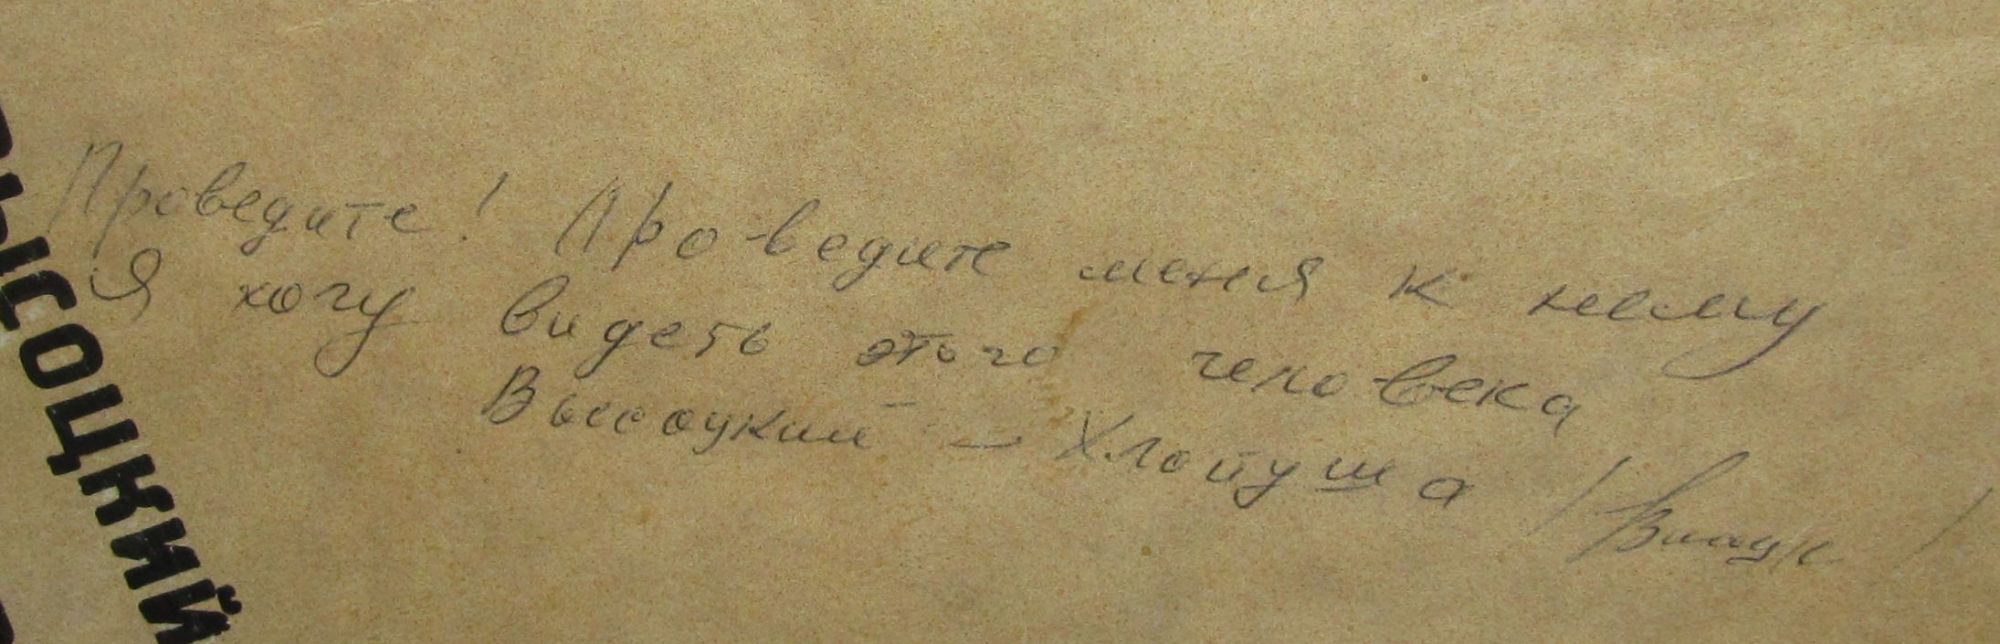 Проведите! Проведите меня к нему
Я хочу видеть этого человека
Высоцкий – Хлопуша /
ВЫСОЦКИЙ